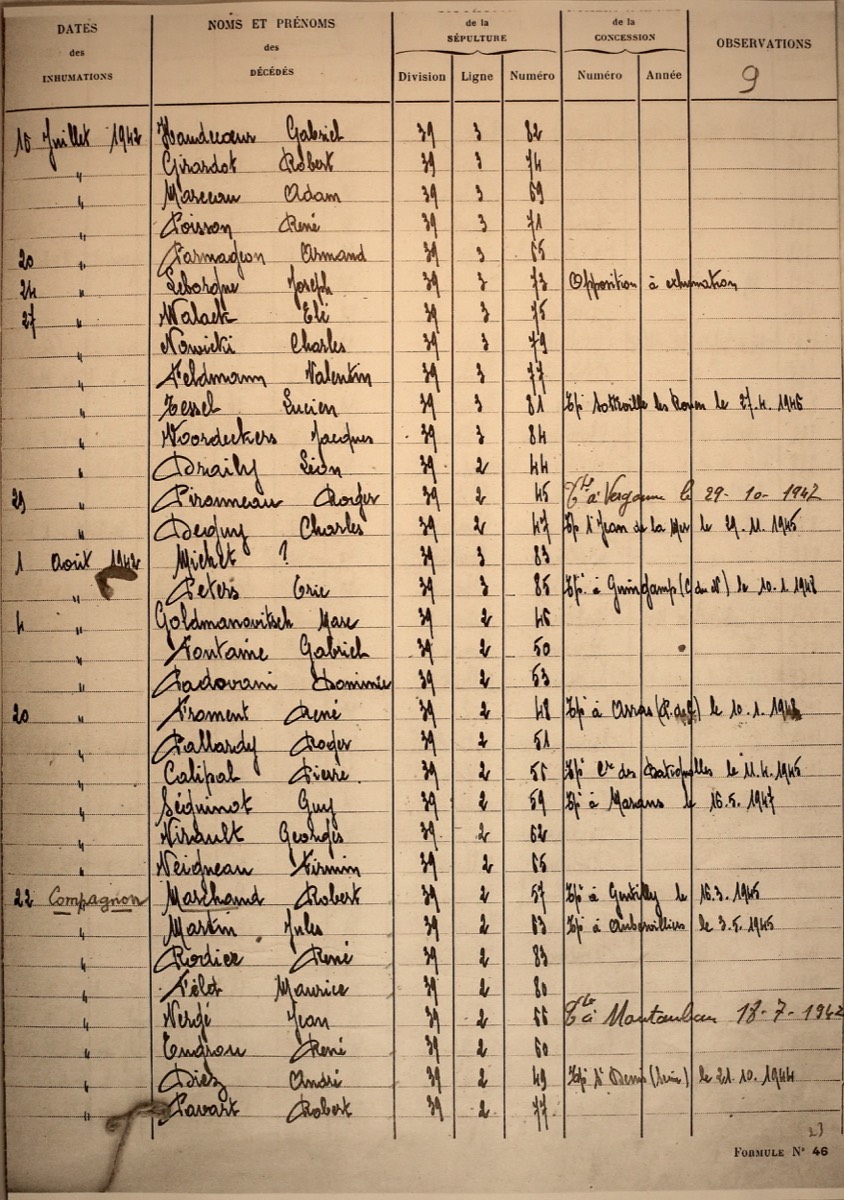 DATES des INHUMATIONS NOMS ET PRÉNOMS des DÉCÉDÉS de la SÉPULTURE de la CONCESSION OBSERVATIONS
Division Ligne Numéro Numéro Année 9
15 Juillet 1942 Haudecoeur Gabriel 39 3 82
" Girardot Robert 39 3 74
" Marceau Adam 39 3 69
" Poisson René 39 3 71
20 " Parmageon Armand 39 3 65
24 " Leborgne Joseph 39 3 73 Opposition à exhumation
27 " Walach Elé 39 3 75
" Nowicki Charles 39 3 79
" Feldmann Valentin 39 3 77
" Tessel Lucien 39 3 81 Tpé Sotteville les Rouen le 27.4.1946
" Noordeckers Jacques 39 3 84
" Draily Léon 39 2 44
29 " Pironneau Roger 39 2 45 à le 29-10-1947
" Deguy Charles 39 2 47 Tpé St Jean de la Mer le 29.11.1945
1 Août 1942 Michet ? 39 3 83
" Peters Eric 39 3 85 Tpé à Guingamp (C du N) le 10.1.1948
4 " Goldmanovitsch Marc 39 2 46
" Fontaine Gabriel 39 2 50
" Padovani Dominic 39 2 53
20 " Froment René 39 2 48 Tpé à Arras (P.de C) le 10.1.1948
" Pallardy Roger 39 2 51
" Calipal Pierre 39 2 55 Tpé Cre des Batignolles le 11.4.1945
" Séguinot Guy 39 2 59 Tpé à Marans le 16.5.1947
" Nirault Georges 39 2 62
" Neigneau Firmin 39 2 65
22 Compagnon Marchand Robert 39 2 57 Tpé à Gentilly le 16.3.1945
" Martin Jules 39 2 63 Tpé à Aubervilliers le 3.5.1945
" Rodier René 39 2 83
" Féld Maurice 39 2 80
" Vergé Jean 39 2 66 à Montauban 18-7-1947
" Endron René 39 2 60
" Diez André 39 2 49 Tpé St Denis (Seine) le 21.10.1944
" Pavart Robert 39 2 77
23
FORMULE N° 46